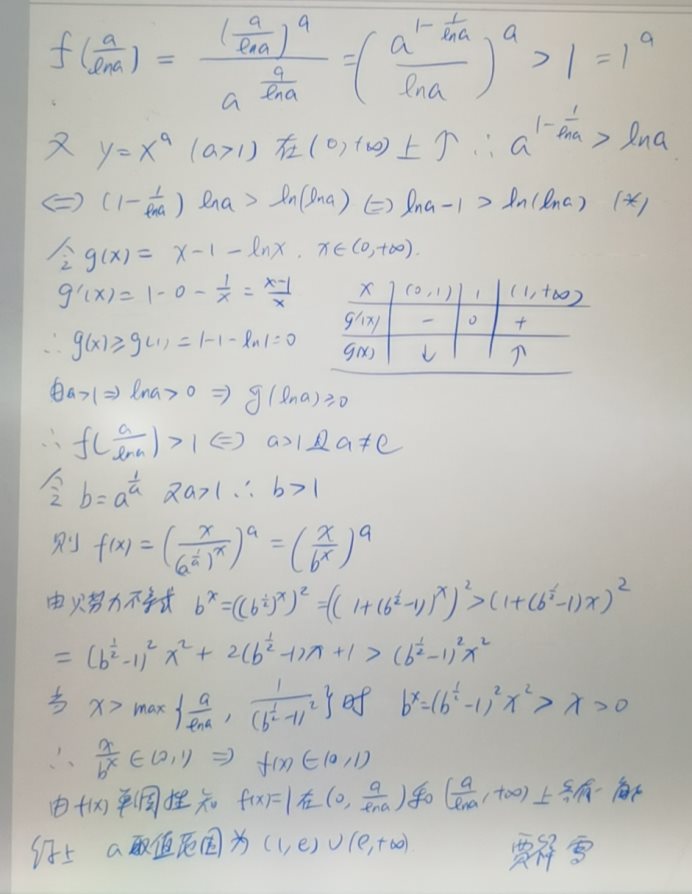 f(a/lna) = (a/lna)^a / a^(a/lna) = (a^(1-1/lna) / lna)^a > 1 = 1^a
又 y=x^a (a>1) 在(0,+∞)上↑ ∴ a^(1-1/lna) > lna
⇔ (1-1/lna) lna > ln(lna) ⇔ lna-1 > ln(lna) (*)
令 g(x) = x-1-lnx. x∈(0,+∞).
g'(x) = 1-0-1/x = (x-1)/x
∴ g(x)≥g(1)=1-1-ln1=0
x (0,1) 1 (1,+∞)
g'(x) - 0 +
g(x) ↓ ↑
由a>1 ⇒ lna>0 ⇒ g(lna)≥0
∴ f(a/lna)>1 ⇔ a>1且a≠e
令 b=a^(1/a) 又a>1 ∴ b>1
则 f(x) = (x/(a^(1/a))^x)^a = (x/b^x)^a
由贝努力不等式 b^x=((b^(1/2))^x)^2=((1+(b^(1/2)-1))^x)^2>(1+(b^(1/2)-1)x)^2
= (b^(1/2)-1)^2 x^2 + 2(b^(1/2)-1)x+1 > (b^(1/2)-1)^2 x^2
当 x > max{a/lna, 1/(b^(1/2)-1)^2}时 b^x=(b^(1/2)-1)^2 x^2 > x > 0
∴ x/b^x ∈(0,1) ⇒ f(x)∈(0,1)
由f(x)单调性知 f(x)=1在(0, a/lna)和(a/lna, +∞)上各有一解
综上 a取值范围为 (1,e)∪(e,+∞) 贾